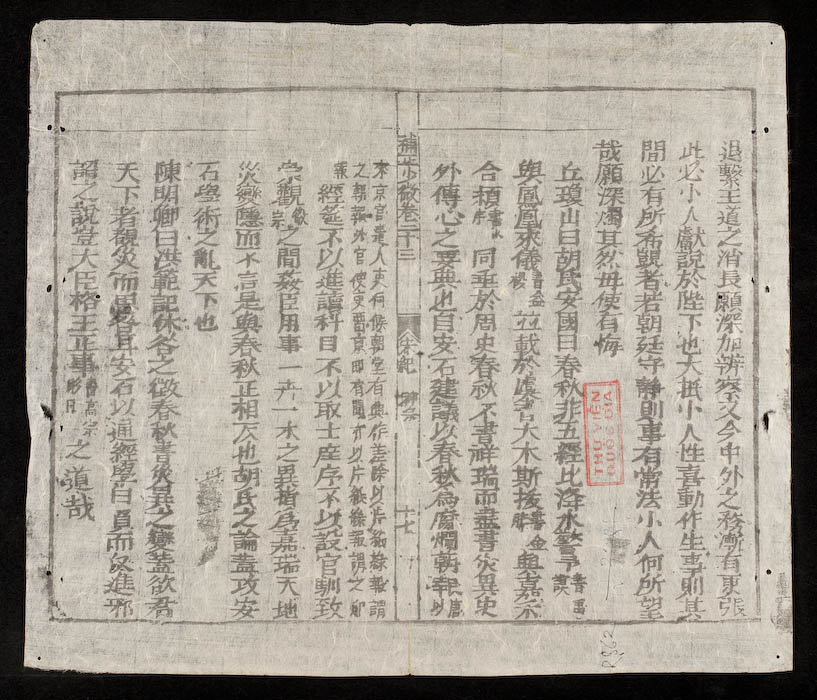 退繫王道之消長願深加辨察又今中外之務漸有更張
此必小人獻說於陛下也大抵小人性喜動作生事則其
間必有所希覬者若朝廷守靜則事有常法小人何所望
哉願深燭其然毋使有悔
丘瓊山曰胡氏安國曰春秋非五經比洚水警予書禹謨
與鳳凰來儀書益稷並載於虞書大木斯拔書金縢與嘉禾
合穎書序同垂於周史春秋不書祥瑞而盡書災異史
外傳心之要典也自安石建議以春秋為腐爛朝報唐以
來京官遣人吏伺候朝堂有興作差除以片紙錄報謂
之朝報外官使吏置京邸有聞亦以片紙錄報謂之邸
報經筵不以進讀科目不以取士庠序不以設官馴致
崇觀徽宗之間姦臣用事一卉一木之異指為嘉瑞天地
災變隱而不言是與春秋正相反也胡氏之論蓋攻安
石學術之亂天下也
陳明卿曰洪範記休咎之徵春秋書災異之變蓋欲君
天下者覩災而思咎耳安石以通經學自負而反進邪
謟之說豈大臣格王正事書高宗肜日之道哉
宋紀
神宗
十七
THƯ VIỆN
QUỐC GIA